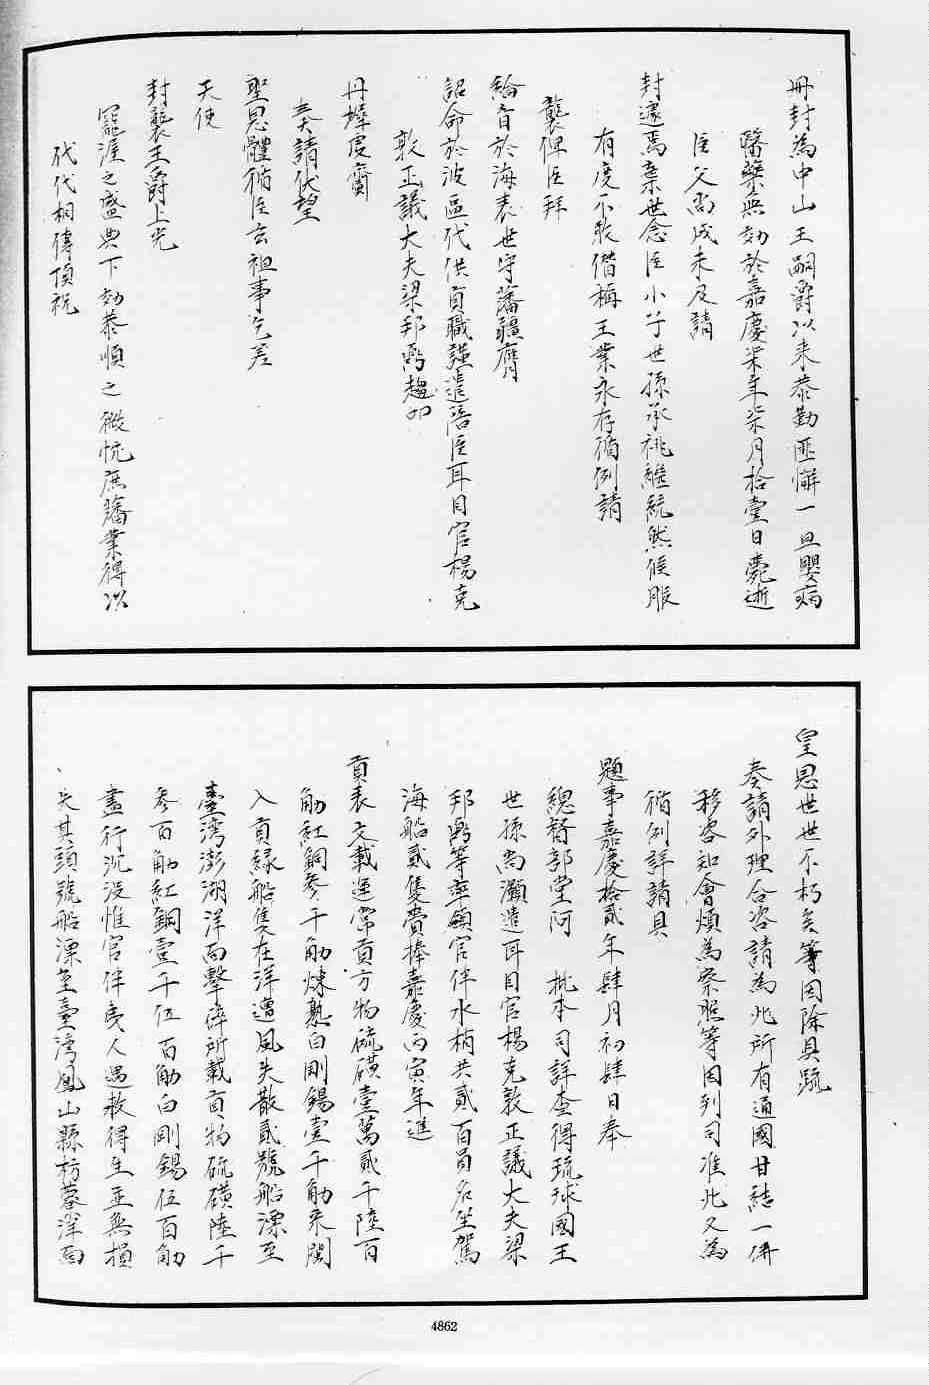 冊封為中山王嗣爵以来恭勤匪懈一旦嬰病
醫藥無効於嘉慶柒年柒月拾壹日薨逝
臣父尚成未及請
封遽焉棄世念臣小子世孫承祧繼統然候服
有度不敢僭稱王業永存循例請
襲俾臣拜
綸音於海表世守藩疆膺
詔命於波區代供貢職謹遣陪臣耳目官楊克
敦正議大夫梁邦弼趨叩
丹墀虔齎
奏請伏望
聖恩體循臣玄祖事乞差
天使
封襲王爵上光
寵渥之盛典下効恭順之微忱庶藩業得以
代代相傳頂祝
皇恩世世不朽矣等因除具疏
奏請外理合咨請為此所有通國甘結一併
移咨知會煩為察照等因到司准此又為
循例詳請具
題事嘉慶拾貳年肆月初肆日奉
總督部堂阿 批本司詳查得琉球國王
世孫尚灝遣耳目官楊克敦正議大夫梁
邦弼等率領官伴水梢共貳百員名坐駕
海船貳隻賫捧嘉慶丙寅年進
貢表文載運常貢方物硫磺壹萬貳千陸百
觔紅銅參千觔煉熟白剛錫壹千觔來閩
入貢縁船隻在洋遭風失散貳號船漂至
臺灣澎湖洋面擊碎所載貢物硫磺陸千
參百觔紅銅壹千伍百觔白剛錫伍百觔
盡行沉沒惟官伴夷人遇救得生並無損
失其頭號船漂至臺灣鳳山縣枋藔洋面
4862